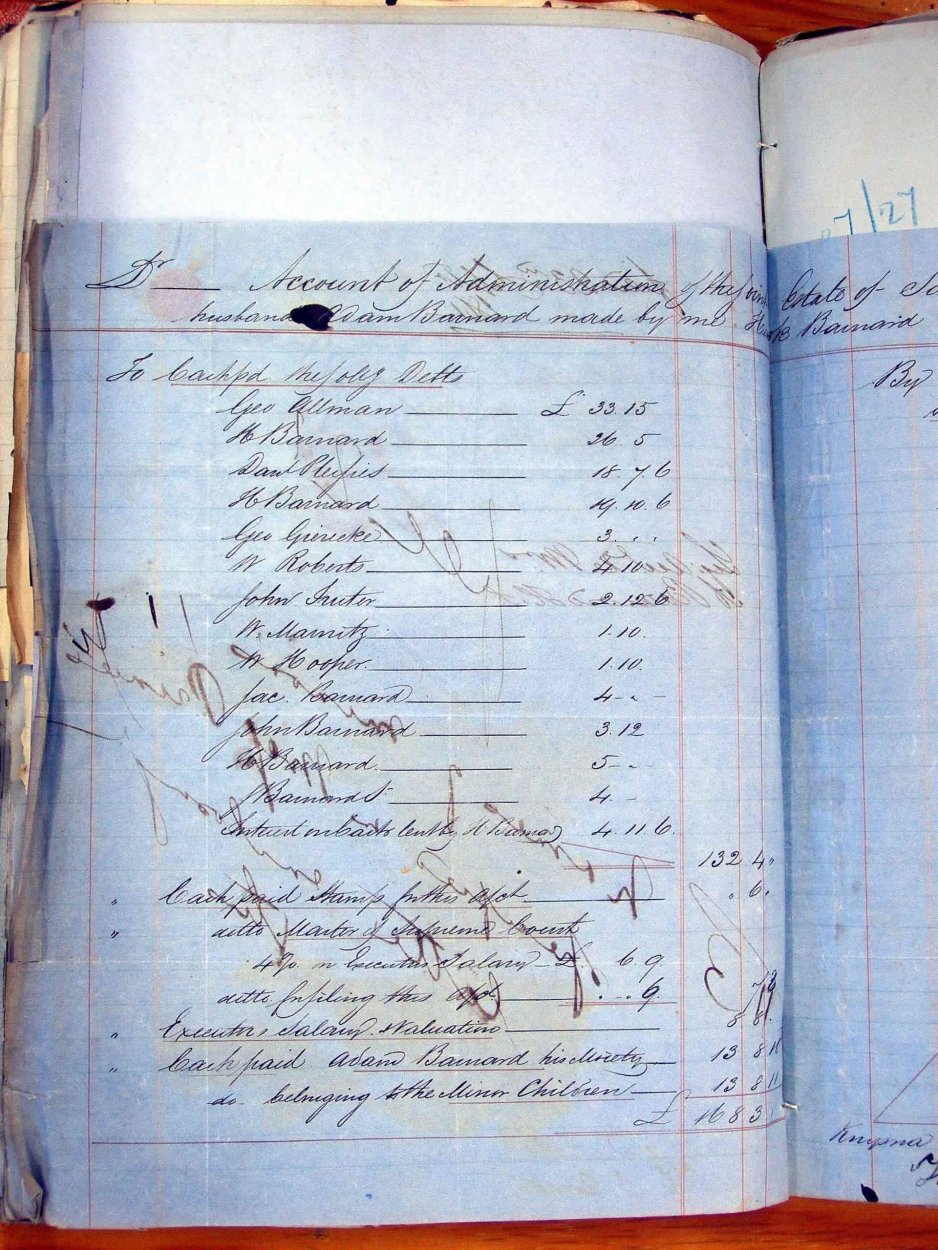 27/27
Dr Account of Administration of the Joint Estate of
husband Adam Barnard made by me Barnard
To Cash pd the folg Debts
Geo Allman £ 33.15
H Barnard 26.5
Danl Plesies 18.7.6
H Barnard 19.10.6
Geo Gierecke 3. . .
W Roberts 4.10.
John Suter 2.12.6
W. Marnitz 1.10.
W Hooper. 1.10.
Jac. Barnard 4 - . -
John Barnard 3.12
H Barnard. 5 - . -
J Barnard S 4. -
Interest on Cash lent by H Barnard 4.11.6.
132 4 "
" Cash paid Stamp for this Acct. " 6.
" ditto Master of Supreme Court
4 % on Executors Salary £ 6 9
ditto for filing this Acct . .. 9.
" Executors Salary & Valuation 8 8.
" Cash paid Adam Barnard his Moiety 13 8 11
do. belonging to the Minor Children 13 8 11
£ 168 3
By
Knysna